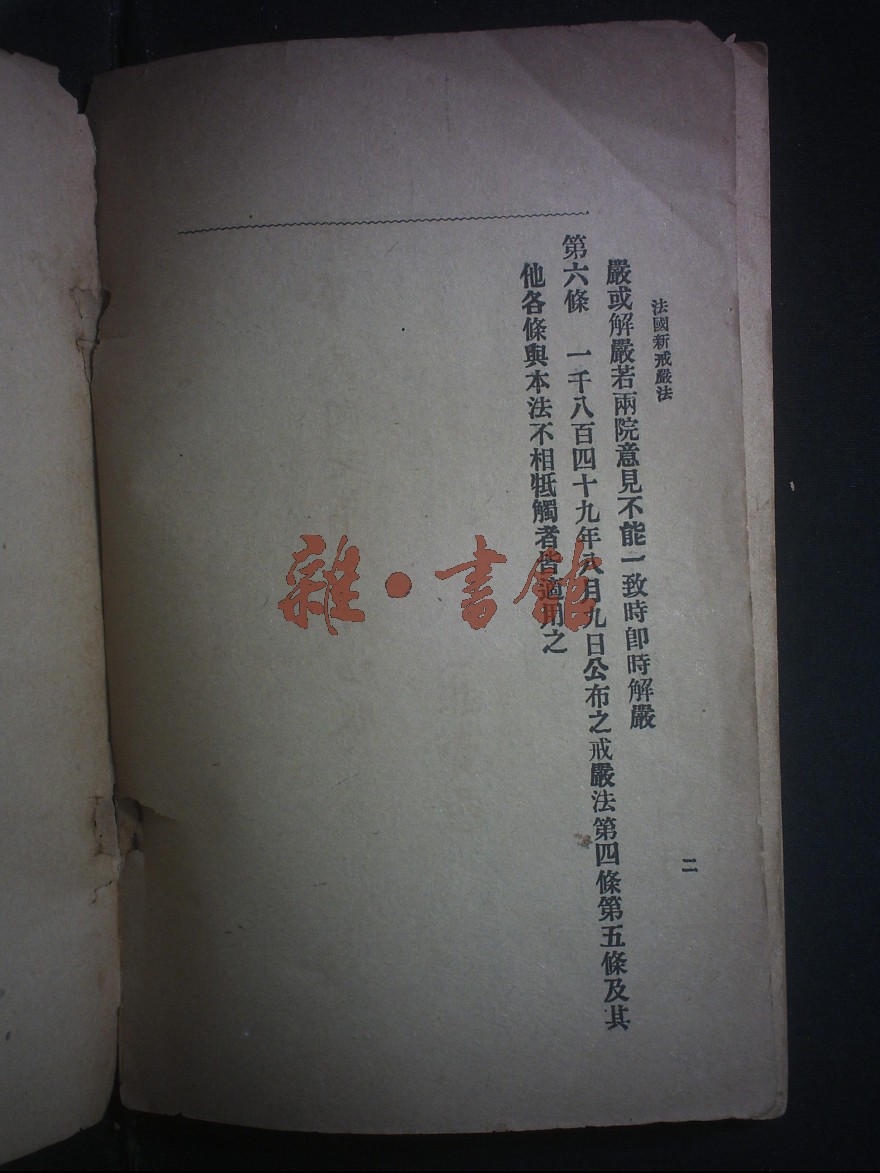 法國新戒嚴法
二
嚴或解嚴若兩院意見不能一致時卽時解嚴
第六條　一千八百四十九年八月九日公布之戒嚴法第四條第五條及其
他各條與本法不相牴觸者皆適用之
雜·書館